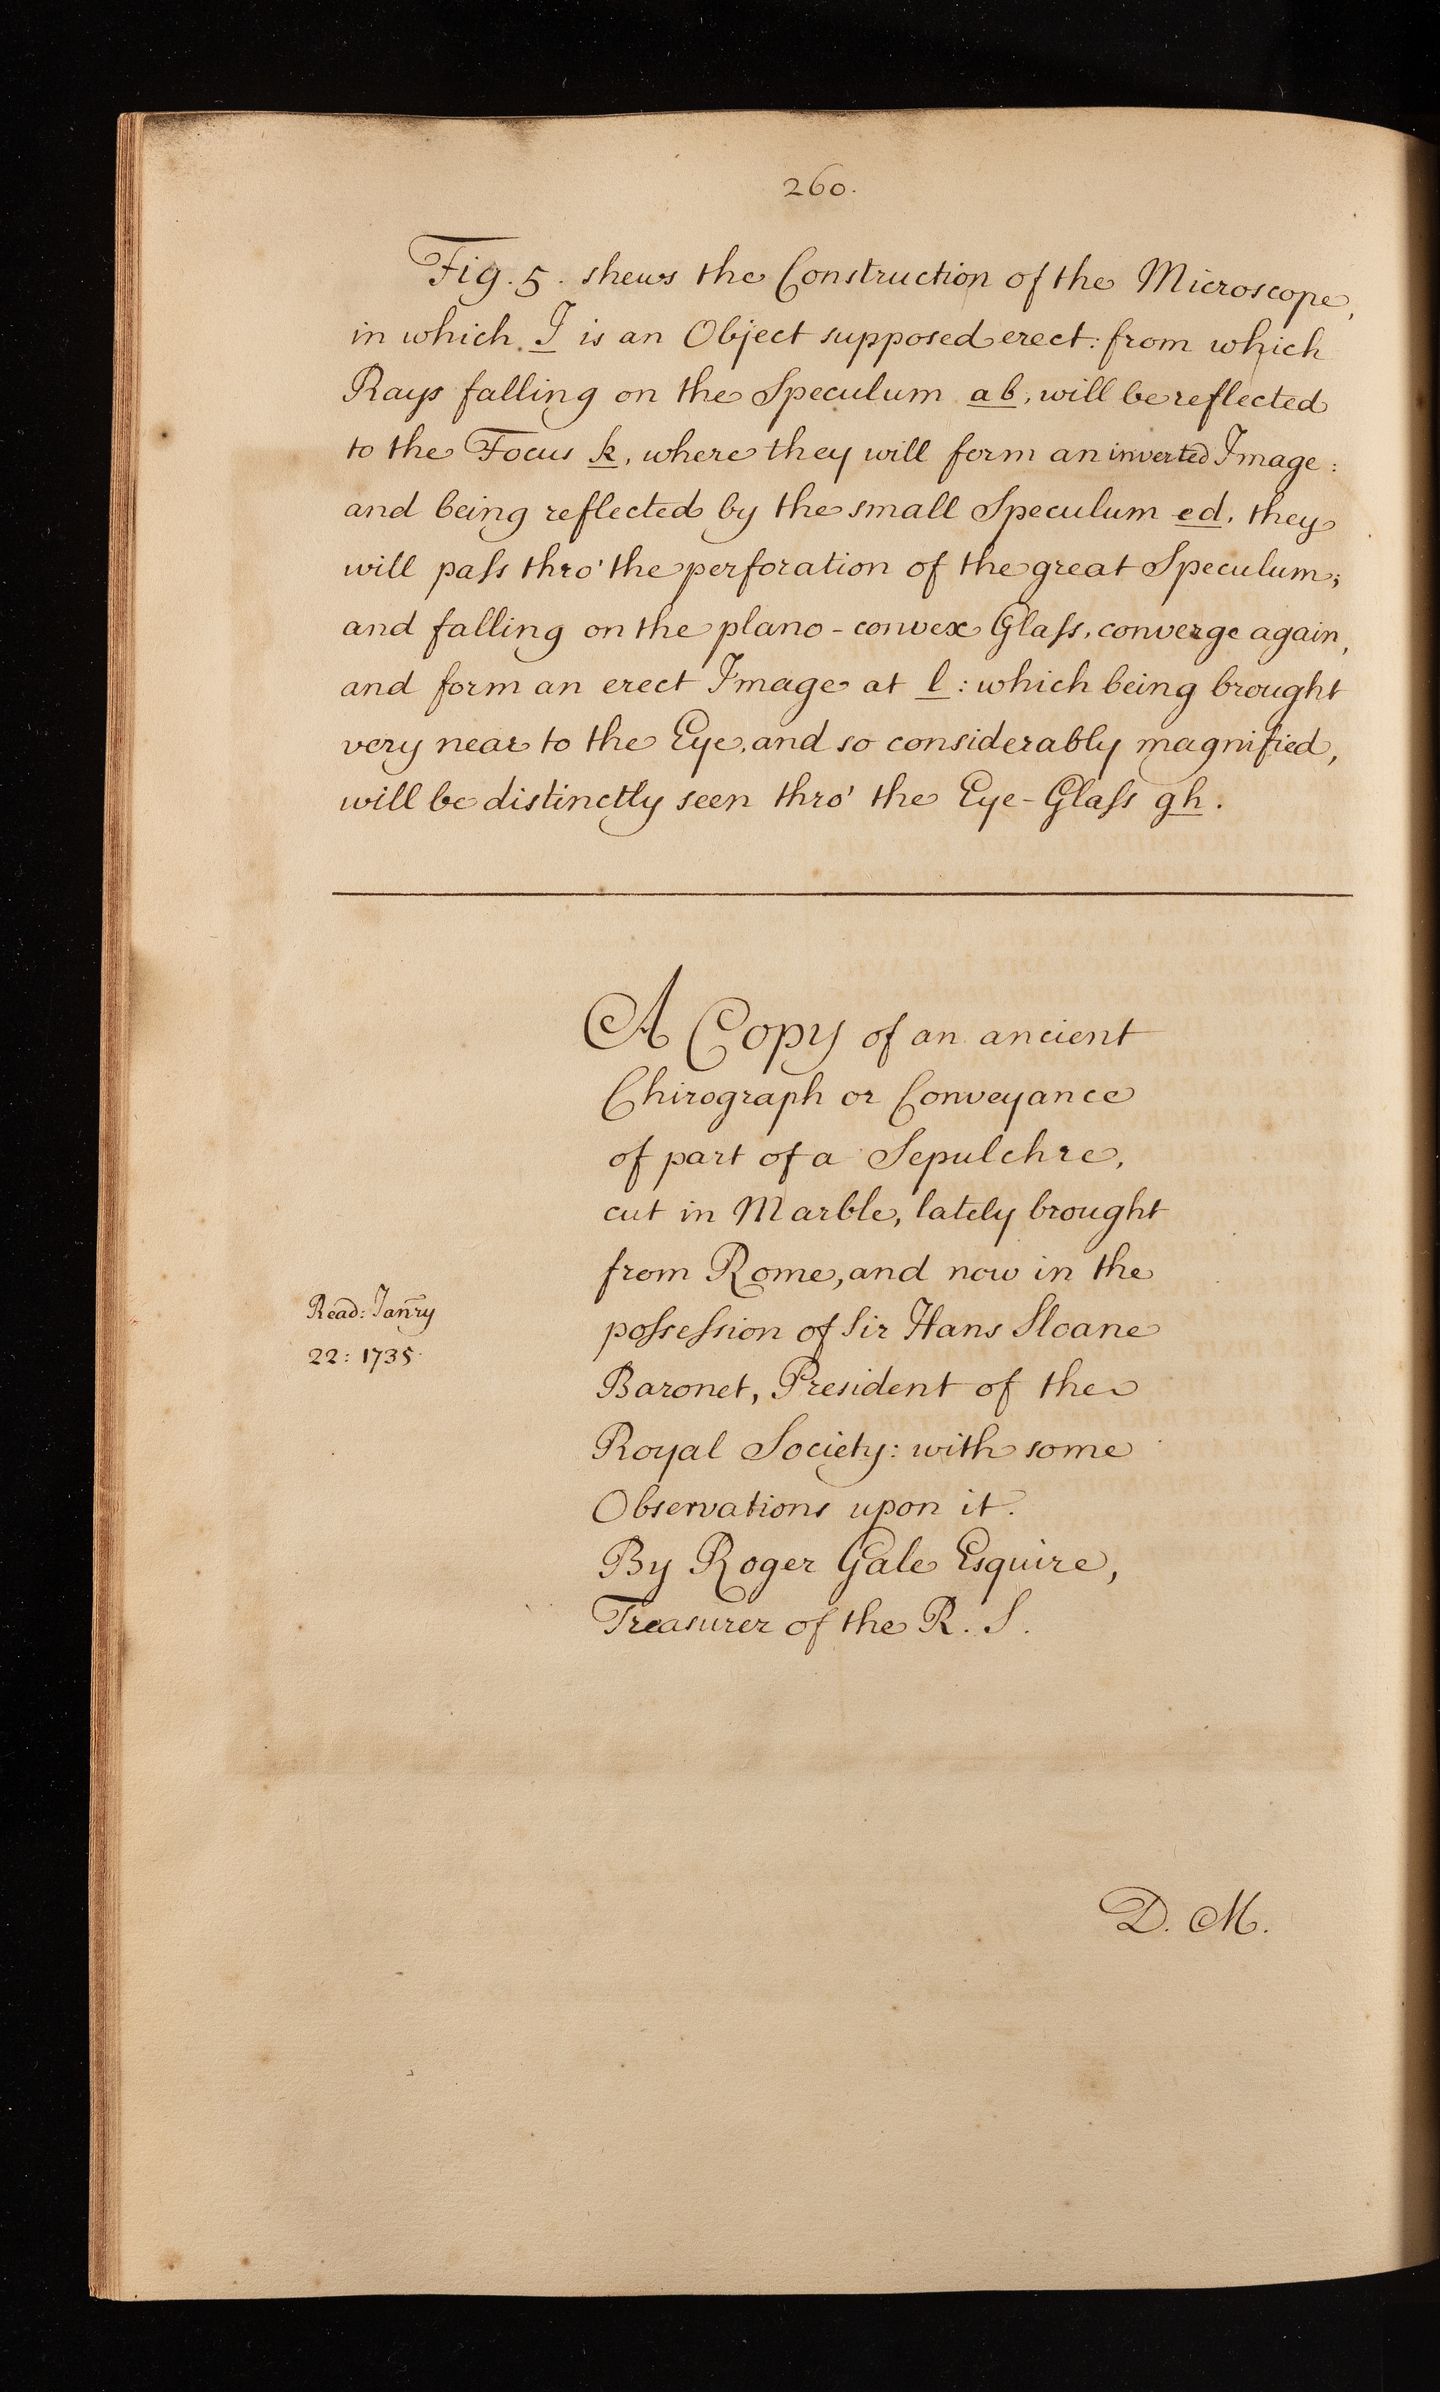 260.
Fig. 5. shews the Construction of the Microscope,
in which I is an Object supposed erect: from which
Rays falling on the Speculum ab, will be reflected
to the Focus k, where they will form an inverted Image:
and being reflected by the small Speculum ed, they
will paſs thro' the perforation of the great Speculum;
and falling on the plano-convex Glaſs, converge again,
and form an erect Image at l: which being brought
very near to the Eye, and so considerably magnified,
will be distinctly seen thro' the Eye-Glaſs gh.
A Copy of an ancient
Chirograph or Conveyance
of part of a Sepulchre,
cut in Marble, lately brought
from Rome, and now in the
poſseſsion of Sir Hans Sloane
Read: Janry
22: 1735.
Baronet, President of the
Royal Society: with some
Observations upon it.
By Roger Gale Esquire,
Treasurer of the R. S.
D. M.